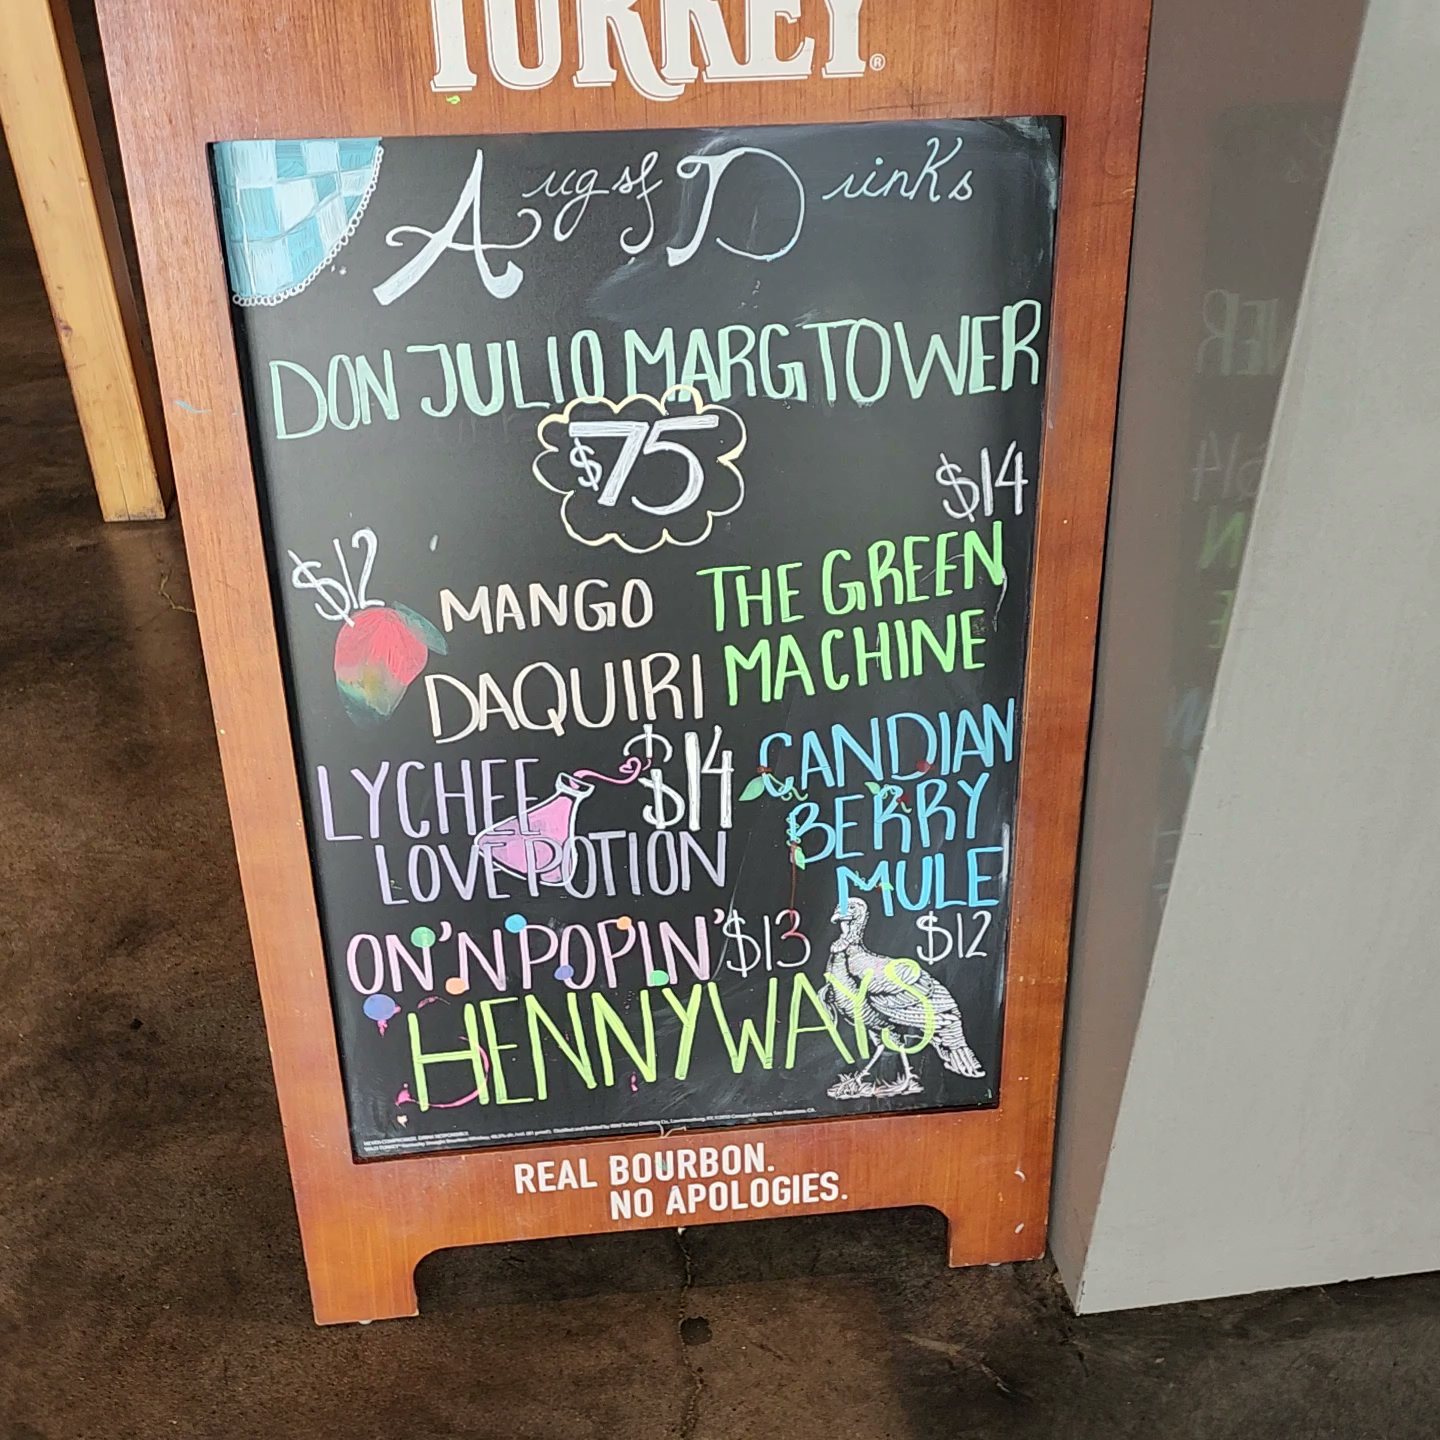 TURKEY®
Augsf Drinks
DON JULIO MARG TOWER
$75
$14
$12
MANGO
DAQUIRI
THE GREEN
MACHINE
LYCHEE $14
LOVE POTION
CANDIAN
BERRY
MULE
$12
ON'N POPIN' $13
HENNYWAYS
REAL BOURBON.
NO APOLOGIES.